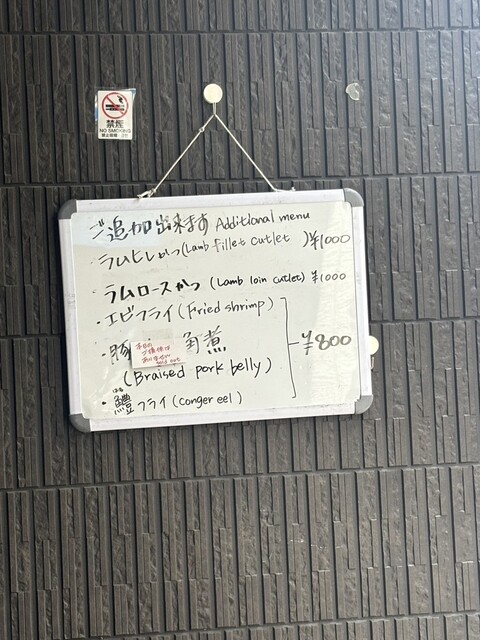 禁煙
NO SMOKING
ご追加出来ます Additional menu
・ラムヒレかつ(Lamb fillet cutlet )¥1000
・ラムロースかつ (Lamb loin cutlet) ¥1000
・エビフライ(Fried shrimp)
・豚 角煮
本日の
ご提供は
ありません
sold out
(Braised pork belly)
¥800
はも
・鱧フライ(conger eel)